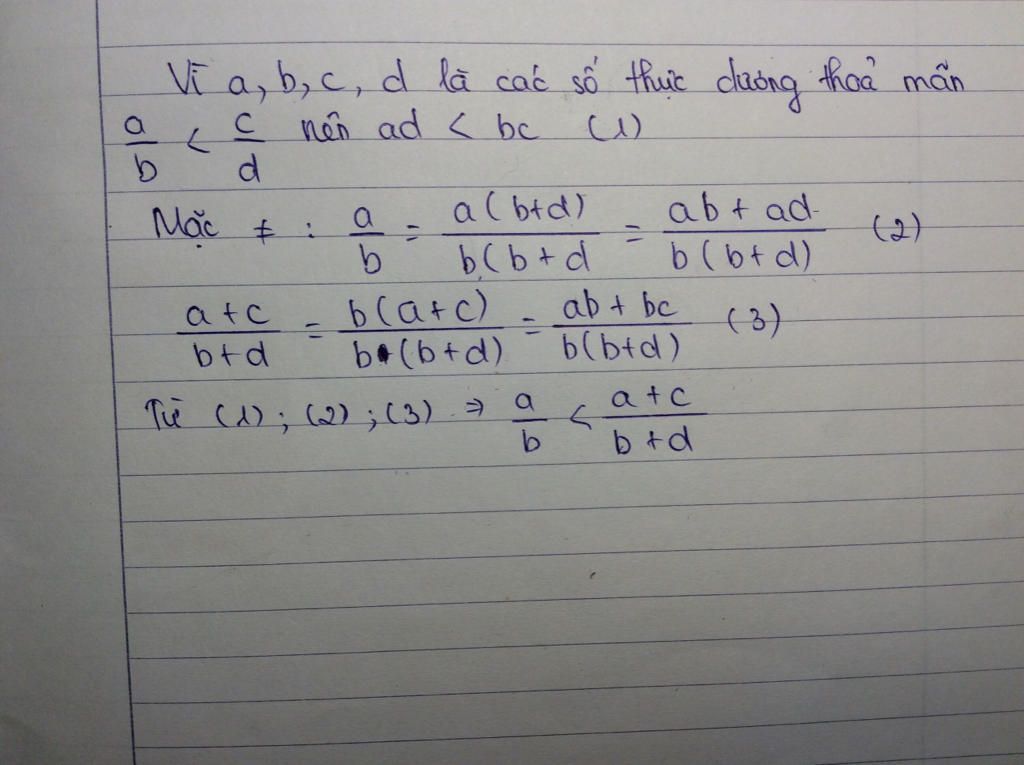 Vì a, b, c, d là các số thực dương thoả mãn
a/b < c/d nên ad < bc (1)
Mặc ≠ : a/b = a(b+d)/b(b+d = ab+ad/b(b+d) (2)
a+c/b+d = b(a+c)/b(b+d) = ab+bc/b(b+d) (3)
Từ (1); (2); (3) ⇒ a/b < a+c/b+d